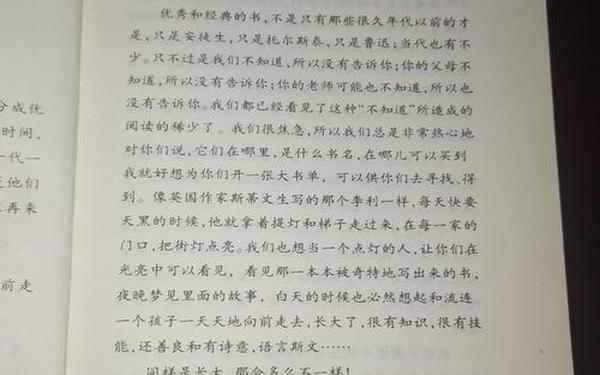 优秀和经典的书，不是只有那些很久年代以前的才
是，只是安徒生，只是托尔斯泰，只是鲁迅；当代也有不
少。只不过是我们不知道，所以没有告诉你；你的父母不
知道，所以没有告诉你；你的老师可能也不知道，所以也
没有告诉你。我们都已经看见了这种“不知道”所造成的
阅读的稀少了。我们很焦急，所以我们总是非常热心地
对你们说，它们在哪里，是什么书名，在哪儿可以买到
我就好想为你们开一张大书单，可以供你们去寻找、得
到。像英国作家斯蒂文生写的那个李利一样，每天快要
天黑的时候，他就拿着提灯和梯子走过来，在每一家的
门口，把街灯点亮。我们也想当一个点灯的人，让你们在
光亮中可以看见，看见那一本本被奇特地写出来的书，
夜晚梦见里面的故事，白天的时候也必然想起和流连
一个孩子一天天地向前走去，长大了，很有知识，很有技
能，还善良和有诗意，语言斯文……
同样是长大，那会多么不一样！
分成优
时间，
一代一
他们
再来
前走